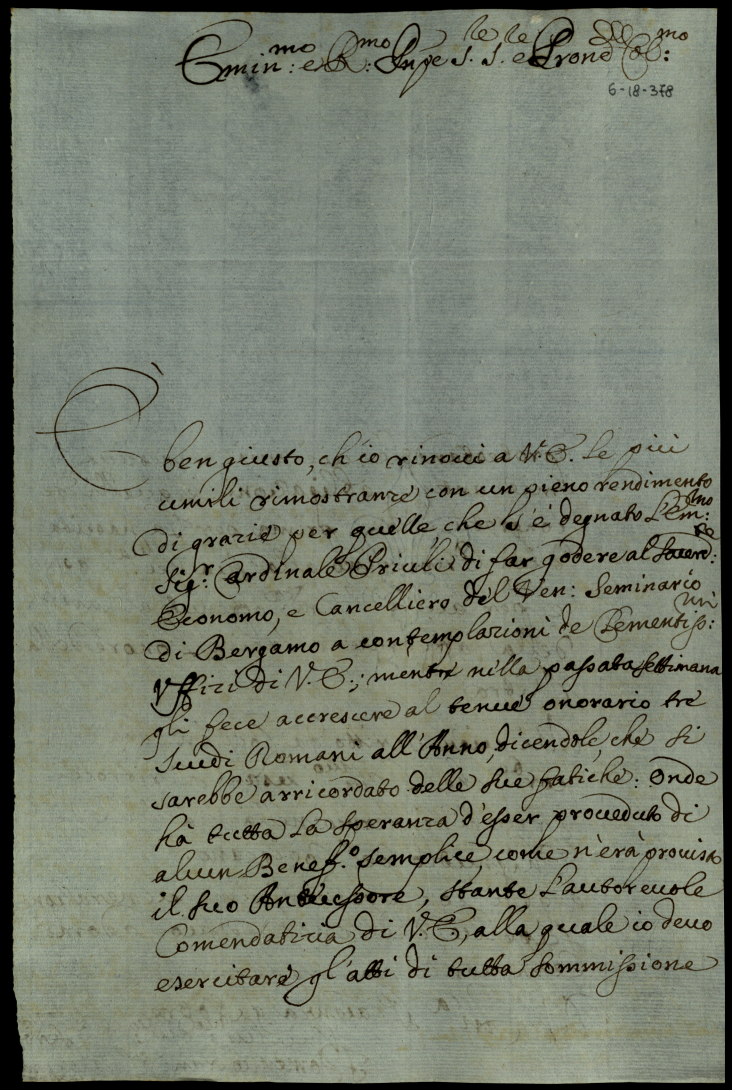 Emin:mo e R:mo Snpe S. S.le e Prone Col:mo
6-18-378
È ben giusto, ch'io rinovi a V. E. le più
umili rimostranze con un pieno rendimento
di grazie per quelle che s'è degnato l'Em:mo
Sig:r Cardinale Priuli di far godere al Sacerd:
Economo, e Cancelliero del Ven: Seminario
di Bergamo a contemplazioni de Clementiss:mi
Uffizi di V. E.; mentre nella passata settimana
gli fece accrescere al tenue onorario tre
Scudi Romani all'Anno, dicendole, che si
sarebbe arricordato delle sue fatiche: Onde
hà tutta la speranza d'esser proveduto di
alcun Benef.o semplice, come n'era proviso
il suo Antecessore, stante l'autorevole
Comendatizia di V. E., alla quale io devo
esercitare gl'atti di tutta sommissione